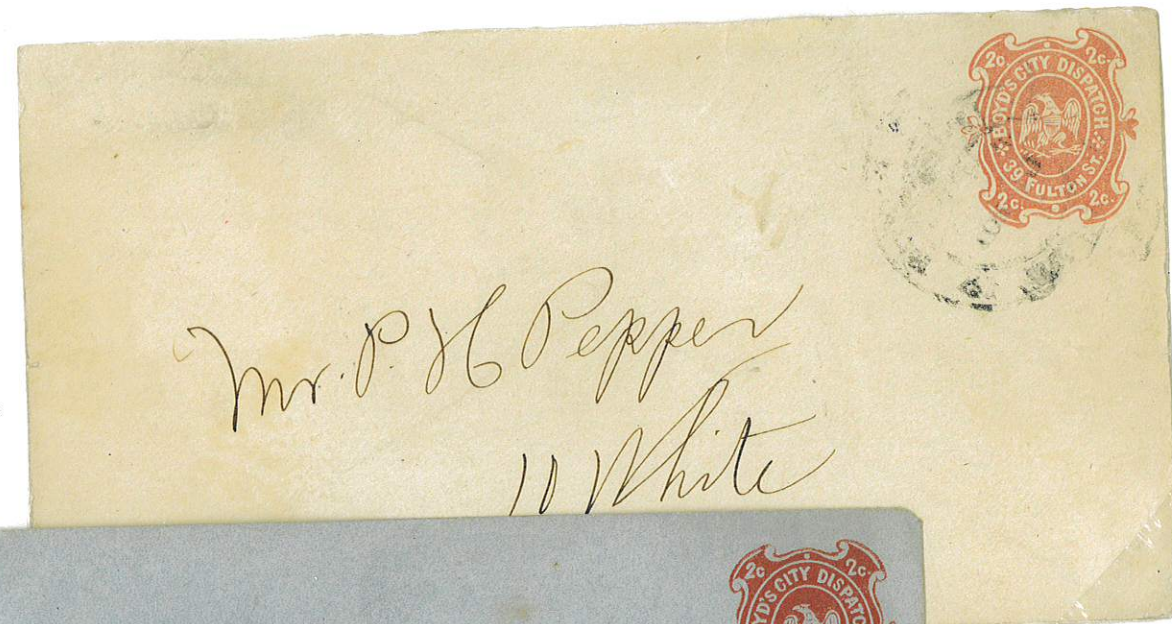 2c. 2c.
BOYD'S CITY DISPATCH
39 FULTON ST.
2c. 2c.
Mr. P. H Pepper
10 White
2c. 2c.
BOYD'S CITY DISPATC